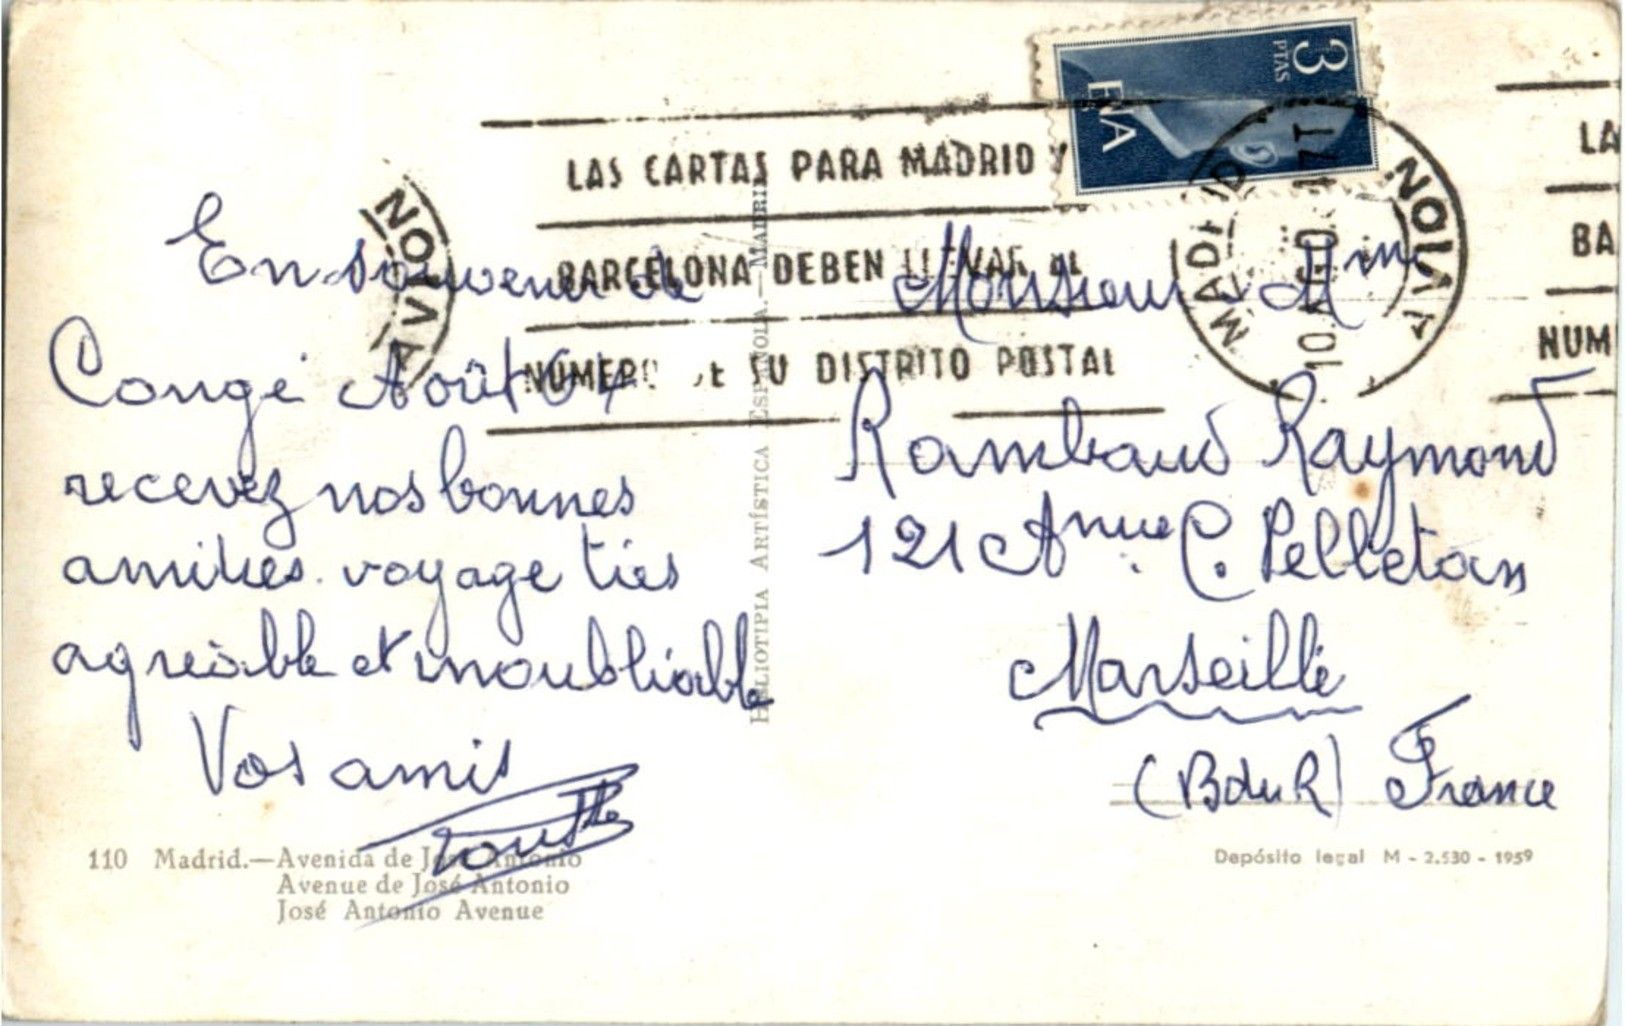 3
PTAS
LAS CARTAS PARA MADRID Y
BARCELONA DEBEN LLEVAR EL
NUMERO DE SU DISTRITO POSTAL
AVION
MADRID
AVION
LA
BA
NUM
En souvenir de
Congé Août 64
recevez nos bonnes
amitiés. voyage très
agréable et inoubliable
Vos amis
Monsieur Mme
Rambaud Raymond
121 Anue C. Pelletan
Marseille
(B du R) France
HELIOTIPIA ARTÍSTICA ESPAÑOLA.—MADRID
110 Madrid.—Avenida de José Antonio
Avenue de José Antonio
José Antonio Avenue
Depósito legal M - 2.530 - 1959